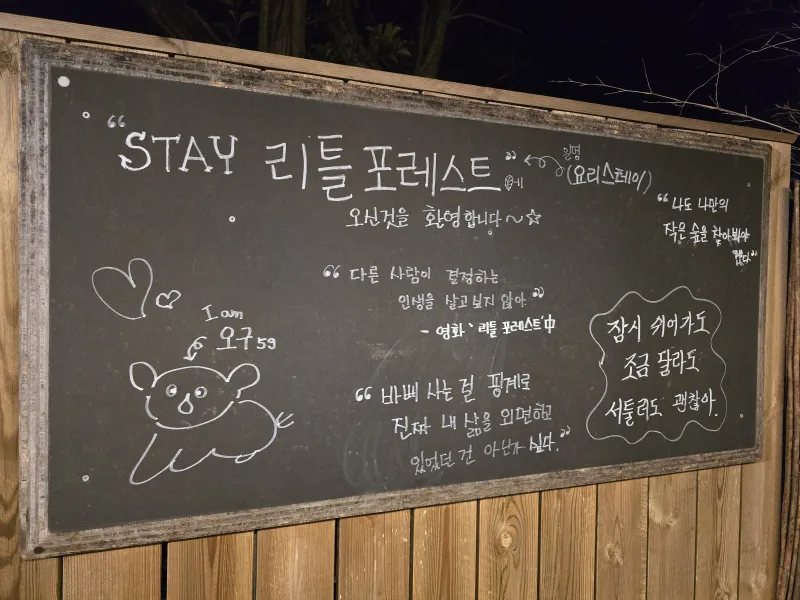 "STAY 리틀 포레스트"에
일명
(요리스테이)
오신것을 환영합니다~☆
"나도 나만의
작은 숲을 찾아봐야
겠다"
"다른 사람이 결정하는
인생을 살고 싶지 않아"
- 영화 '리틀 포레스트' 中
I am
오구 59
"바삐 사는 걸 핑계로
진짜 내 삶을 외면하고
있었던 건 아닌가 싶다."
잠시 쉬어가도
조금 달라도
서툴러도 괜찮아.